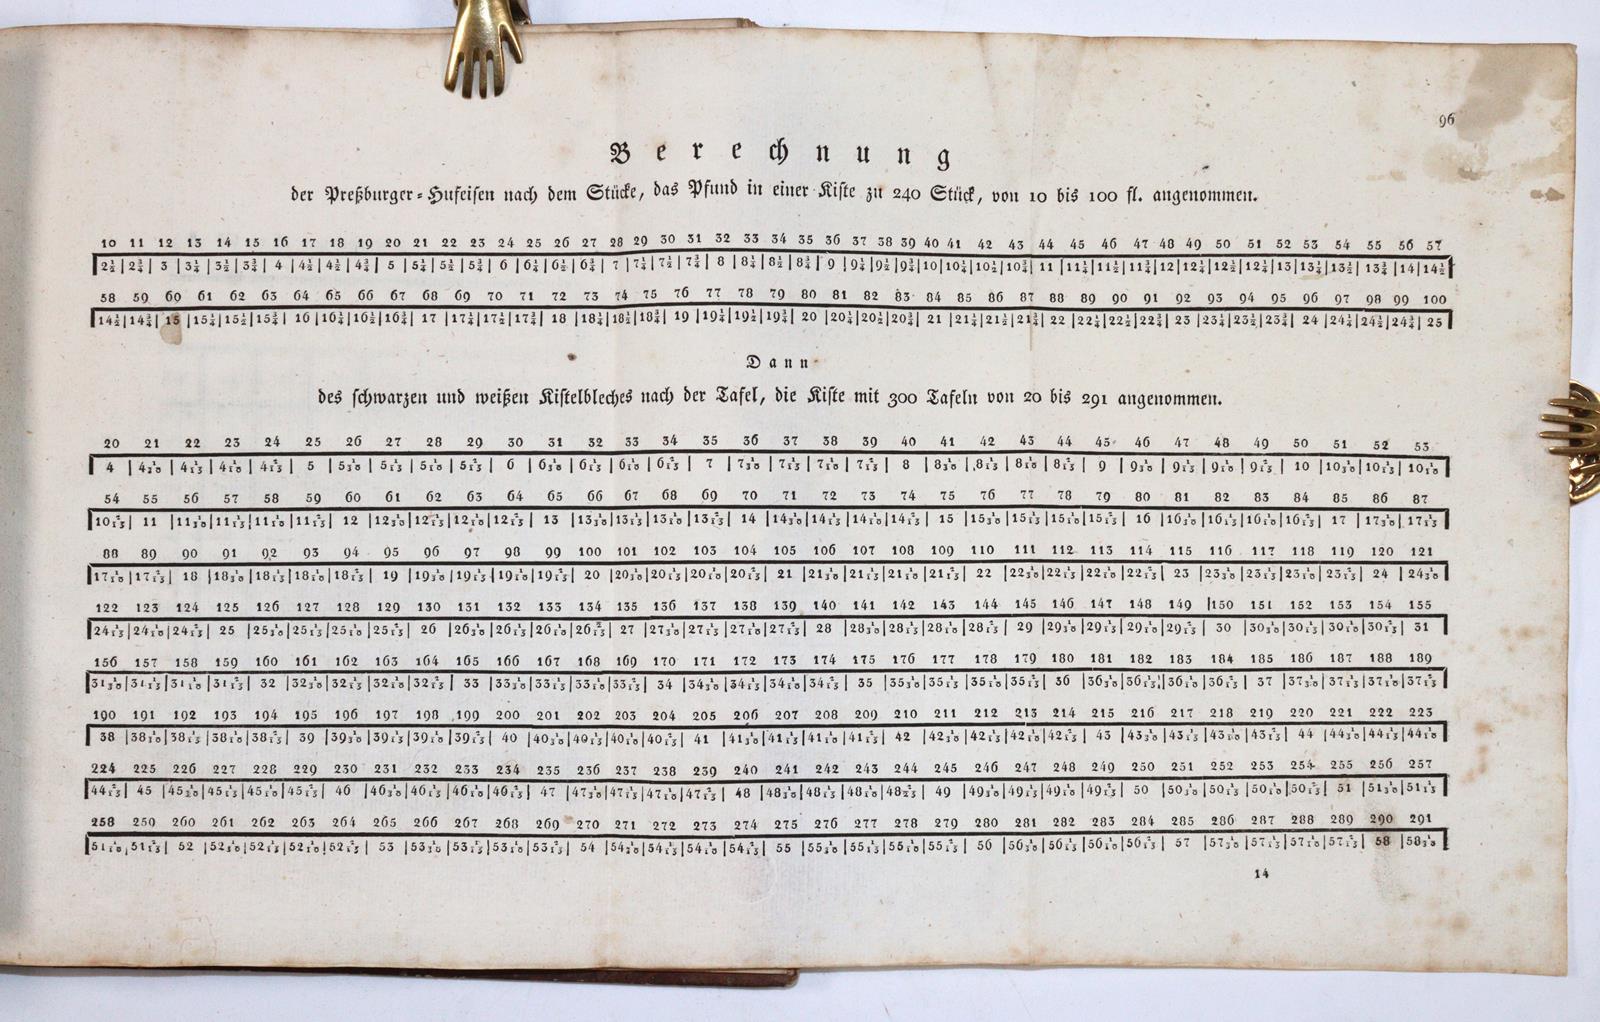 96
Berechnung
der Preßburger-Hufeisen nach dem Stücke, das Pfund in einer Kiste zu 240 Stück, von 10 bis 100 fl. angenommen.
10 11 12 13 14 15 16 17 18 19 20 21 22 23 24 25 26 27 28 29 30 31 32 33 34 35 36 37 38 39 40 41 42 43 44 45 46 47 48 49 50 51 52 53 54 55 56 57
2½ 2¾ 3 3¼ 3½ 3¾ 4 4½ 4½ 4¾ 5 5¼ 5½ 5¾ 6 6¼ 6½ 6¾ 7 7¼ 7½ 7¾ 8 8¼ 8½ 8¾ 9 9¼ 9½ 9¾ 10 10¼ 10½ 10¾ 11 11¼ 11½ 11¾ 12 12¼ 12½ 12¾ 13 13¼ 13½ 13¾ 14 14½
58 59 60 61 62 63 64 65 66 67 68 69 70 71 72 73 74 75 76 77 78 79 80 81 82 83 84 85 86 87 88 89 90 91 92 93 94 95 96 97 98 99 100
14½ 14¾ 15 15¼ 15½ 15¾ 16 16¼ 16½ 16¾ 17 17¼ 17½ 17¾ 18 18¼ 18½ 18¾ 19 19¼ 19½ 19¾ 20 20¼ 20½ 20¾ 21 21¼ 21½ 21¾ 22 22¼ 22½ 22¾ 23 23¼ 23½ 23¾ 24 24¼ 24½ 24¾ 25
Dann
des schwarzen und weißen Kistelbleches nach der Tafel, die Kiste mit 300 Tafeln von 20 bis 291 angenommen.
20 21 22 23 24 25 26 27 28 29 30 31 32 33 34 35 36 37 38 39 40 41 42 43 44 45 46 47 48 49 50 51 52 53
4 4 1/30 4 1/15 4 1/10 4 2/15 5 5 1/30 5 1/15 5 1/10 5 2/15 6 6 1/30 6 1/15 6 1/10 6 2/15 7 7 1/30 7 1/15 7 1/10 7 2/15 8 8 1/30 8 1/15 8 1/10 8 2/15 9 9 1/30 9 1/15 9 1/10 9 2/15 10 10 1/30 10 1/15 10 1/10
54 55 56 57 58 59 60 61 62 63 64 65 66 67 68 69 70 71 72 73 74 75 76 77 78 79 80 81 82 83 84 85 86 87
10 2/15 11 11 1/30 11 1/15 11 1/10 11 2/15 12 12 1/30 12 1/15 12 1/10 12 2/15 13 13 1/30 13 1/15 13 1/10 13 2/15 14 14 1/30 14 1/15 14 1/10 14 2/15 15 15 1/30 15 1/15 15 1/10 15 2/15 16 16 1/30 16 1/15 16 1/10 16 2/15 17 17 1/30 17 1/15
88 89 90 91 92 93 94 95 96 97 98 99 100 101 102 103 104 105 106 107 108 109 110 111 112 113 114 115 116 117 118 119 120 121
17 1/10 17 2/15 18 18 1/30 18 1/15 18 1/10 18 2/15 19 19 1/30 19 1/15 19 1/10 19 2/15 20 20 1/30 20 1/15 20 1/10 20 2/15 21 21 1/30 21 1/15 21 1/10 21 2/15 22 22 1/30 22 1/15 22 1/10 22 2/15 23 23 1/30 23 1/15 23 1/10 23 2/15 24 24 1/30
122 123 124 125 126 127 128 129 130 131 132 133 134 135 136 137 138 139 140 141 142 143 144 145 146 147 148 149 150 151 152 153 154 155
24 1/15 24 1/10 24 2/15 25 25 1/30 25 1/15 25 1/10 25 2/15 26 26 1/30 26 1/15 26 1/10 26 2/15 27 27 1/30 27 1/15 27 1/10 27 2/15 28 28 1/30 28 1/15 28 1/10 28 2/15 29 29 1/30 29 1/15 29 1/10 29 2/15 30 30 1/30 30 1/15 30 1/10 30 2/15 31
156 157 158 159 160 161 162 163 164 165 166 167 168 169 170 171 172 173 174 175 176 177 178 179 180 181 182 183 184 185 186 187 188 189
31 1/30 31 1/15 31 1/10 31 2/15 32 32 1/30 32 1/15 32 1/10 32 2/15 33 33 1/30 33 1/15 33 1/10 33 2/15 34 34 1/30 34 1/15 34 1/10 34 2/15 35 35 1/30 35 1/15 35 1/10 35 2/15 36 36 1/30 36 1/15 36 1/10 36 2/15 37 37 1/30 37 1/15 37 1/10 37 2/15
190 191 192 193 194 195 196 197 198 199 200 201 202 203 204 205 206 207 208 209 210 211 212 213 214 215 216 217 218 219 220 221 222 223
38 38 1/30 38 1/15 38 1/10 38 2/15 39 39 1/30 39 1/15 39 1/10 39 2/15 40 40 1/30 40 1/15 40 1/10 40 2/15 41 41 1/30 41 1/15 41 1/10 41 2/15 42 42 1/30 42 1/15 42 1/10 42 2/15 43 43 1/30 43 1/15 43 1/10 43 2/15 44 44 1/30 44 1/15 44 1/10
224 225 226 227 228 229 230 231 232 233 234 235 236 237 238 239 240 241 242 243 244 245 246 247 248 249 250 251 252 253 254 255 256 257
44 2/15 45 45 1/30 45 1/15 45 1/10 45 2/15 46 46 1/30 46 1/15 46 1/10 46 2/15 47 47 1/30 47 1/15 47 1/10 47 2/15 48 48 1/30 48 1/15 48 1/10 48 2/15 49 49 1/30 49 1/15 49 1/10 49 2/15 50 50 1/30 50 1/15 50 1/10 50 2/15 51 51 1/30 51 1/15
258 259 260 261 262 263 264 265 266 267 268 269 270 271 272 273 274 275 276 277 278 279 280 281 282 283 284 285 286 287 288 289 290 291
51 1/10 51 2/15 52 52 1/30 52 1/15 52 1/10 52 2/15 53 53 1/30 53 1/15 53 1/10 53 2/15 54 54 1/30 54 1/15 54 1/10 54 2/15 55 55 1/30 55 1/15 55 1/10 55 2/15 56 56 1/30 56 1/15 56 1/10 56 2/15 57 57 1/30 57 1/15 57 1/10 57 2/15 58 58 1/30
14